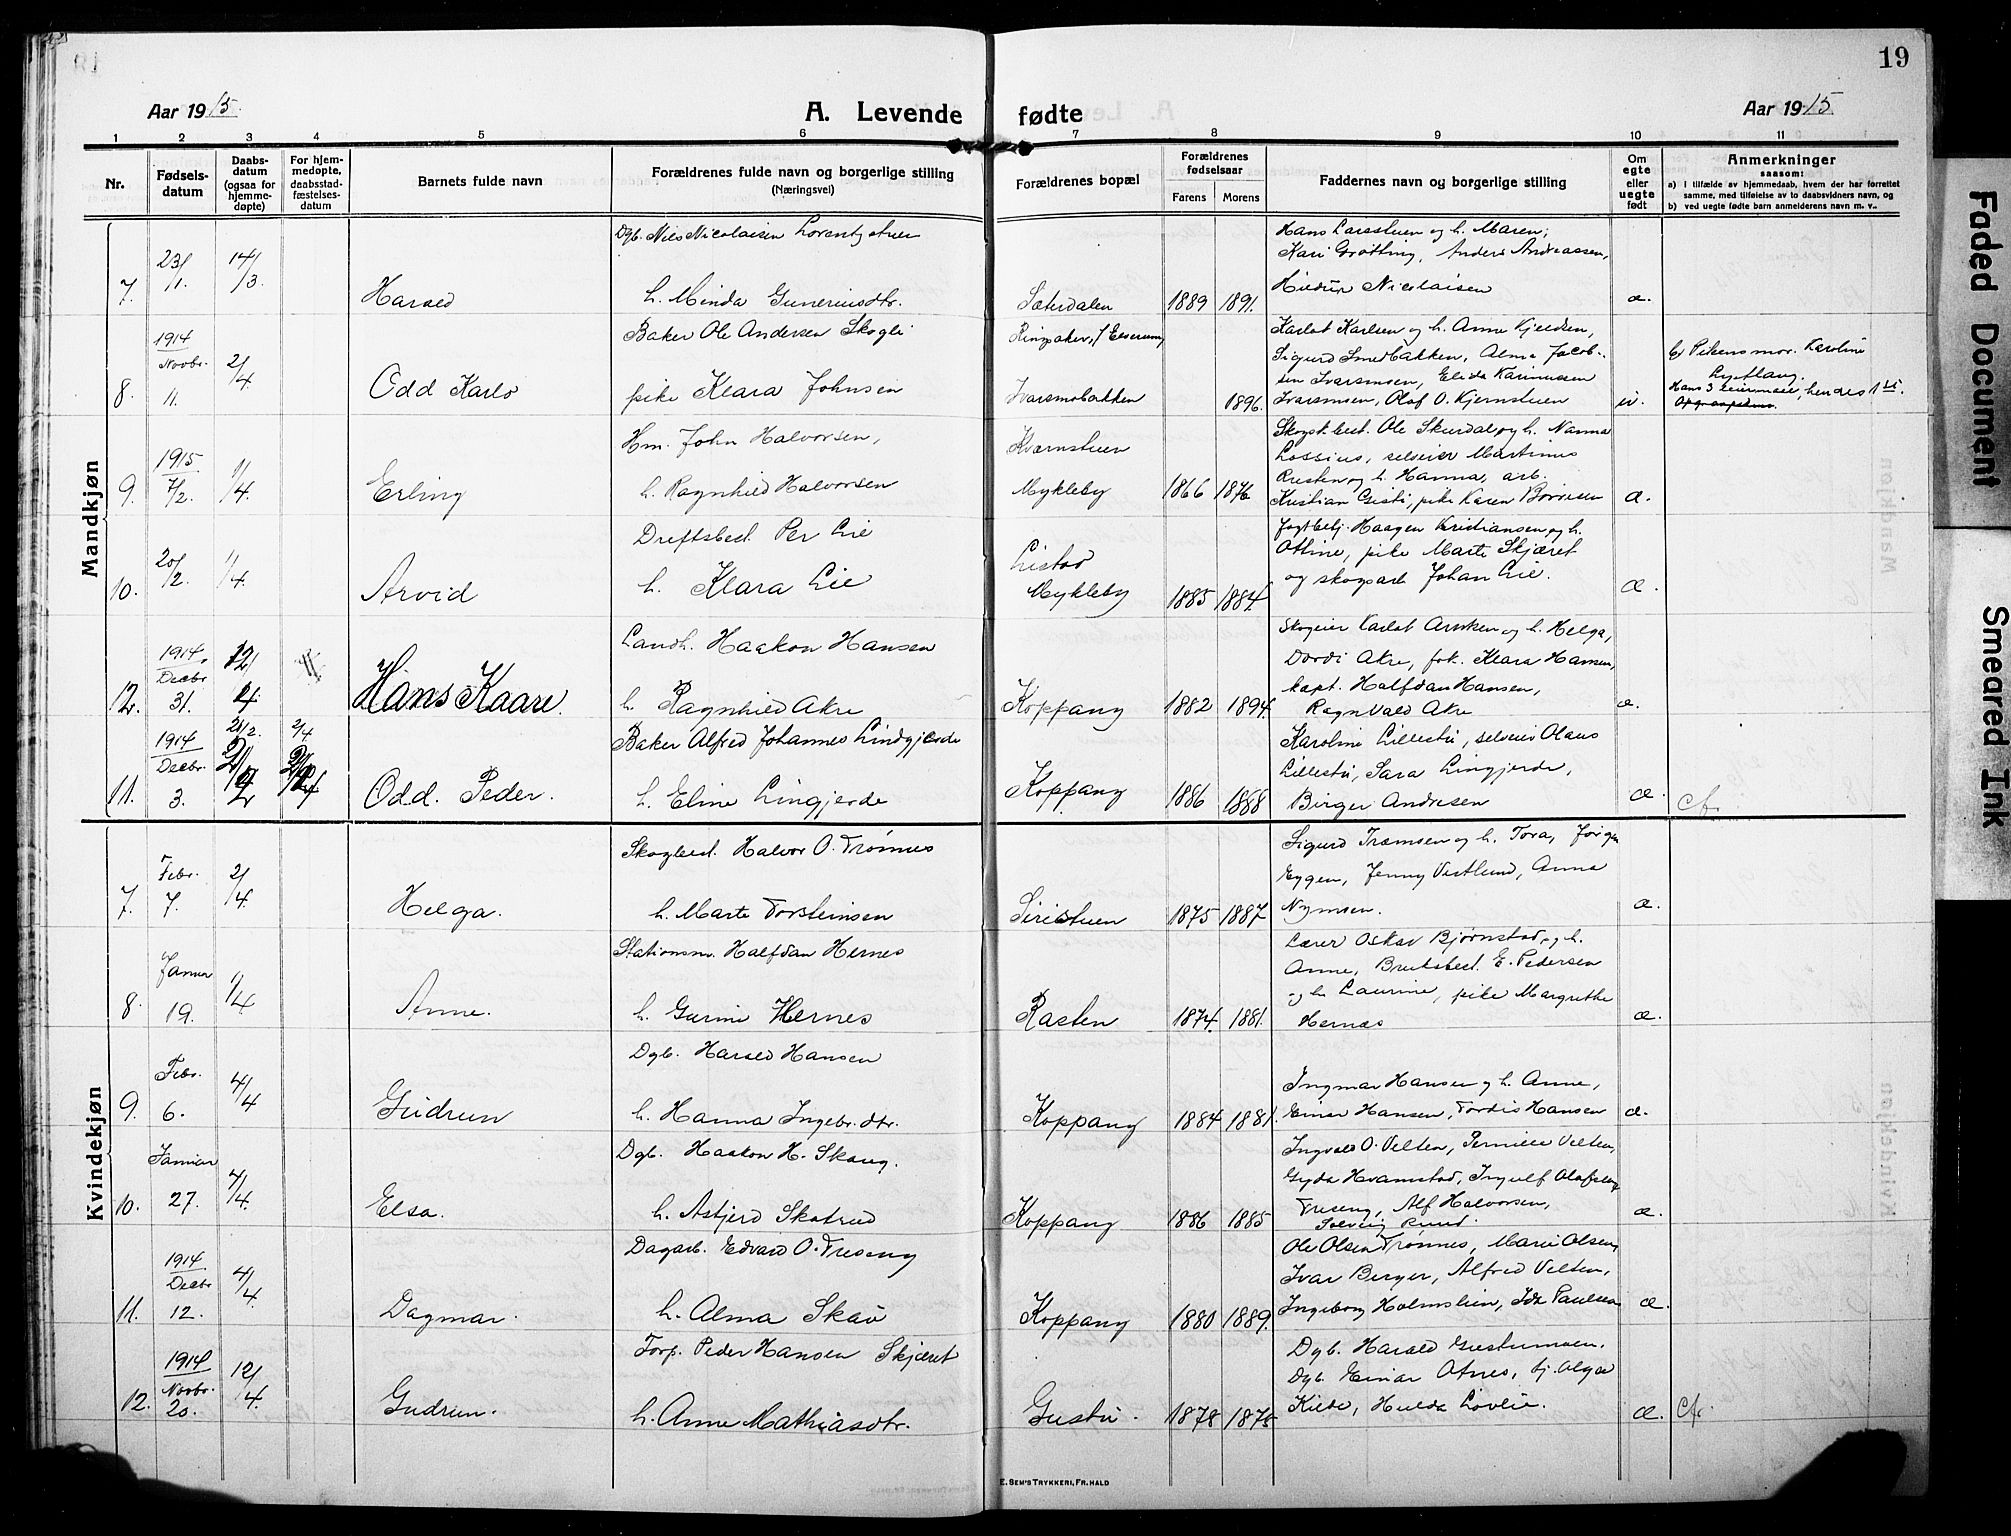 19
Aar 1915.
A. Levende fødte
Aar 1915.
1 2 3 4 5 6 7 8 9 10 11
Nr.
Fødsels-
datum
Daabs-
datum
(ogsaa for
hjemme-
døpte)
For hjem-
medøpte,
daabsstad-
fæstelses-
datum
Barnets fulde navn
Forældrenes fulde navn og borgerlige stilling
(Næringsvei)
Forældrenes bopæl
Forældrenes
fødselsaar
Farens Morens
Faddernes navn og borgerlige stilling
Om
egte
eller
uegte
født
Anmerkninger
saasom:
a) i tilfælde av hjemmedaab, hvem der har forrettet
samme, med tilføielse av to daabsvidners navn, og
b) ved uegte fødte barn anmelderens navn m. v.
Mandkjøn
7. 23/1. 14/3 Harald
Dgb. Nils Nicolaisen Lorentzstuen
h. Minda Guneriusdtr.
Sæterdalen 1889 1891.
Hans Larsstuen og h. Maren,
Kari Grøtting, Anders Andreassen,
Nicolaisen
æ.
8. 1914 Novbr. 11. 2/4. Odd Karlo
Baker Ole Andersen Skogli
pike Klara Johnsen
Ringsaker,
Ivarsmobakken 1896.
Karlot Karlsen og h. Anne Kjeldsen,
Sigurd Smedbakken, Alma Jacob-
sen Ivarsmoen, Elida
Ivarsmoen, Olof O. Kjernstuen
Pikens mor. Karoline
9. 1915. 7/2. 1/4. Erling
Hm. John Halvorsen,
h. Ragnhild Halvorsen
Kværnstuen
Mykleby 1866 1876
Skogst.best. Ole Skurdal og h. Nanna
Lossius, selveier Martinus
og h. Hanna, arb.
Kristian pike Karen
æ.
10. 20/2. 1/4. Arvid
Driftsbest. Per Lie
h. Klara Lie
Listad
Mykleby 1885 1884.
Haagen Kristiansen og h.
Ottine, pike Marte Skjæret
og skogsarb. Johan Lie.
æ.
12. 1914. Decbr. 31. 12/4 Hans Kaare.
Landh. Haakon Hansen
h. Ragnhild Akre
Koppang 1882 1894.
Skogeier Karlot og h. Helga,
Dordi Akre, frk. Klara Hansen,
kapt. Halfdan Hansen,
Ragnvald Akre
æ.
11. 1914 Decbr. 3. 21/2. 2/4 Odd. Peder.
Baker Alfred Johannes Lindgjerde
h. Eline Lingjerde
Koppang 1886 1888
Karoline Lillestu, selveier Olaus
Lillestu, Sara Lingjerde,
Birger Andresen
æ. Cfr.
Kvindekjøn
7. Febr. 7. 2/4. Helga.
Skogbest. Halvor O. Trønnes
h. Marte Torsteinsen
Siristuen 1875 1887
Sigurd og h. Tora, Jørgen
Eggen, Jenny Vestlund, Anna
Nymoen.
æ.
8. Januar 19. 1/4 Anne.
Stationsm. Halfdan Hernes
h. Gurine Hernes
Rasten 1874. 1881.
Lærer Oskar Bjørnstad og h.
Anne, Bruksbest. E. Pedersen
og h. Laurine, pike Margrethe
Hernæs
æ.
9. Febr. 6. 4/4 Gudrun
Dgb. Harald Hansen
h. Hanna Ingebr.dtr.
Koppang 1884 1881.
Ingmar Hansen og h. Anne,
Einar Hansen, Tordis Hansen
æ.
10. Januar 27. 4/4. Elsa.
Dgb. Haakon H. Skaug.
h. Astjerd Skotrud
Koppang 1886 1885
Ingvald O. Velten, Pernille Velten,
Gyda Hvamstad, Ingulf Olafsen
Treseng, Alf Halvorsen,
Solveig Ruud.
æ.
11. 1914 Decbr 12. 4/4. Dagmar.
Dagarb. Edvard O. Treseng
h. Alma Skaø
Koppang 1880 1889.
Ole Olsen Trønnes, Marie Olsen,
Ivar Berger, Alfred Velten,
Ingeborg Holmslien, Ida Paulsen
æ.
12. 1914 Novbr. 20. 12/4. Gudrun.
Torp. Peder Hansen Skjæret
h. Anne Mathiasdtr.
Gustu. 1878 1875
Dgb. Harald Gustumoen.
Dgb. Einar Otnes, tj. Olga
Kilde, Hulda Løvlie.
æ. Cfr.
E. SEM'S TRYKKERI, FR.HALD
Faded Document
Smeared Ink